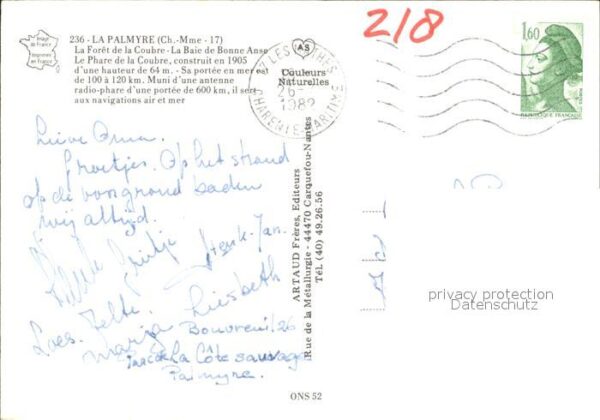 236 - LA PALMYRE (Ch.-Mme - 17)
La Forêt de la Coubre - La Baie de Bonne Anse
Le Phare de la Coubre, construit en 1905
d'une hauteur de 64 m. - Sa portée en mer est
de 100 à 120 km. Muni d'une antenne
radio-phare d'une portée de 600 km, il sert
aux navigations air et mer
Image de France
Imprimée en France
AS
Couleurs
Naturelles
LES
26 -
1982
CHARENTE MARITIME
218
1,60
REPUBLIQUE FRANÇAISE
Lieve Oma.
Groetjes. Op het strand
op de voorgrond baden
wij altijd.
Henk-Jan.
Liesbeth
Marija
Bouvreuil 26
La Côte sauvage
Palmyre.
ARTAUD Frères, Editeurs
Rue de la Métallurgie - 44470 Carquefou-Nantes
Tél. (40) 49.26.56
ONS 52
privacy protection
Datenschutz